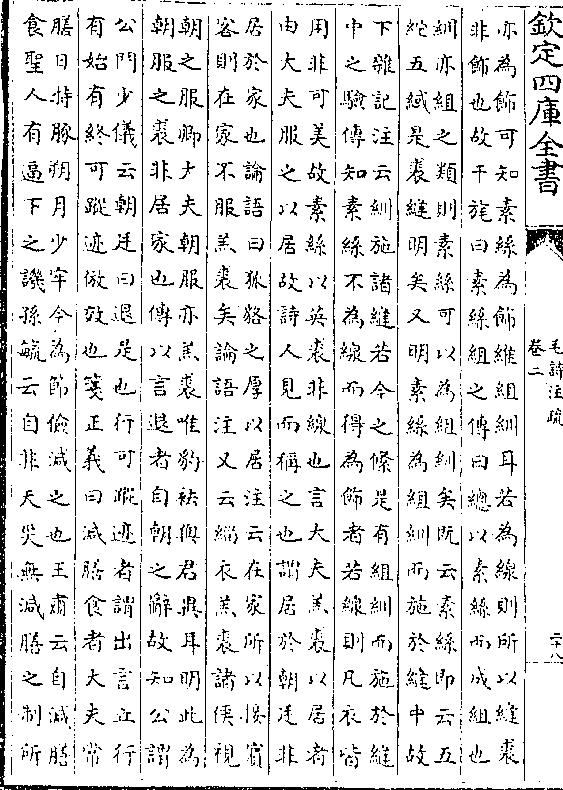 欽定四庫全書
毛詩注疏
卷二
二十八
亦為飾可知素絲為飾維組紃耳若為線則所以縫裘
非飾也故干旄曰素絲組之傳曰總以素絲而成組也
紃亦組之類則素絲可以為組紃矣既云素絲即云五
紽五緎是裘縫明矣又明素絲為組紃而施於縫中故
下雜記注云紃施諸縫若今之絛是有組紃而施於縫
中之驗傳知素絲不為線而得為飾者若線則凡衣皆
用非可美故素絲以英裘非線也言大夫羔裘以居者
由大夫服之以居故詩人見而稱之也謂居於朝廷非
居於家也論語曰狐貉之厚以居注云在家所以接賓
客則在家不服羔裘矣論語注又云緇衣羔裘諸侯視
朝之服卿大夫朝服亦羔裘唯豹袪與君異耳明此為
朝服之裘非居家也傳以言退者自朝之辭故知公謂
公門少儀云朝廷曰退是也行可蹤迹者謂出言立行
有始有終可蹤迹倣效也箋正義曰減膳食者大夫常
膳日特豚朔月少牢今為節儉減之也王肅云自減膳
食聖人有逼下之譏孫毓云自非天災無減膳之制所